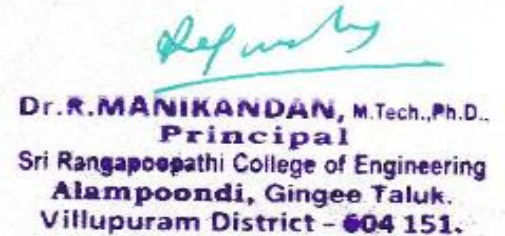 Dr.R.MANIKANDAN, M.Tech.,Ph.D.,
Principal
Sri Rangapoopathi College of Engineering
Alampoondi, Gingee Taluk.
Villupuram District - 604 151.